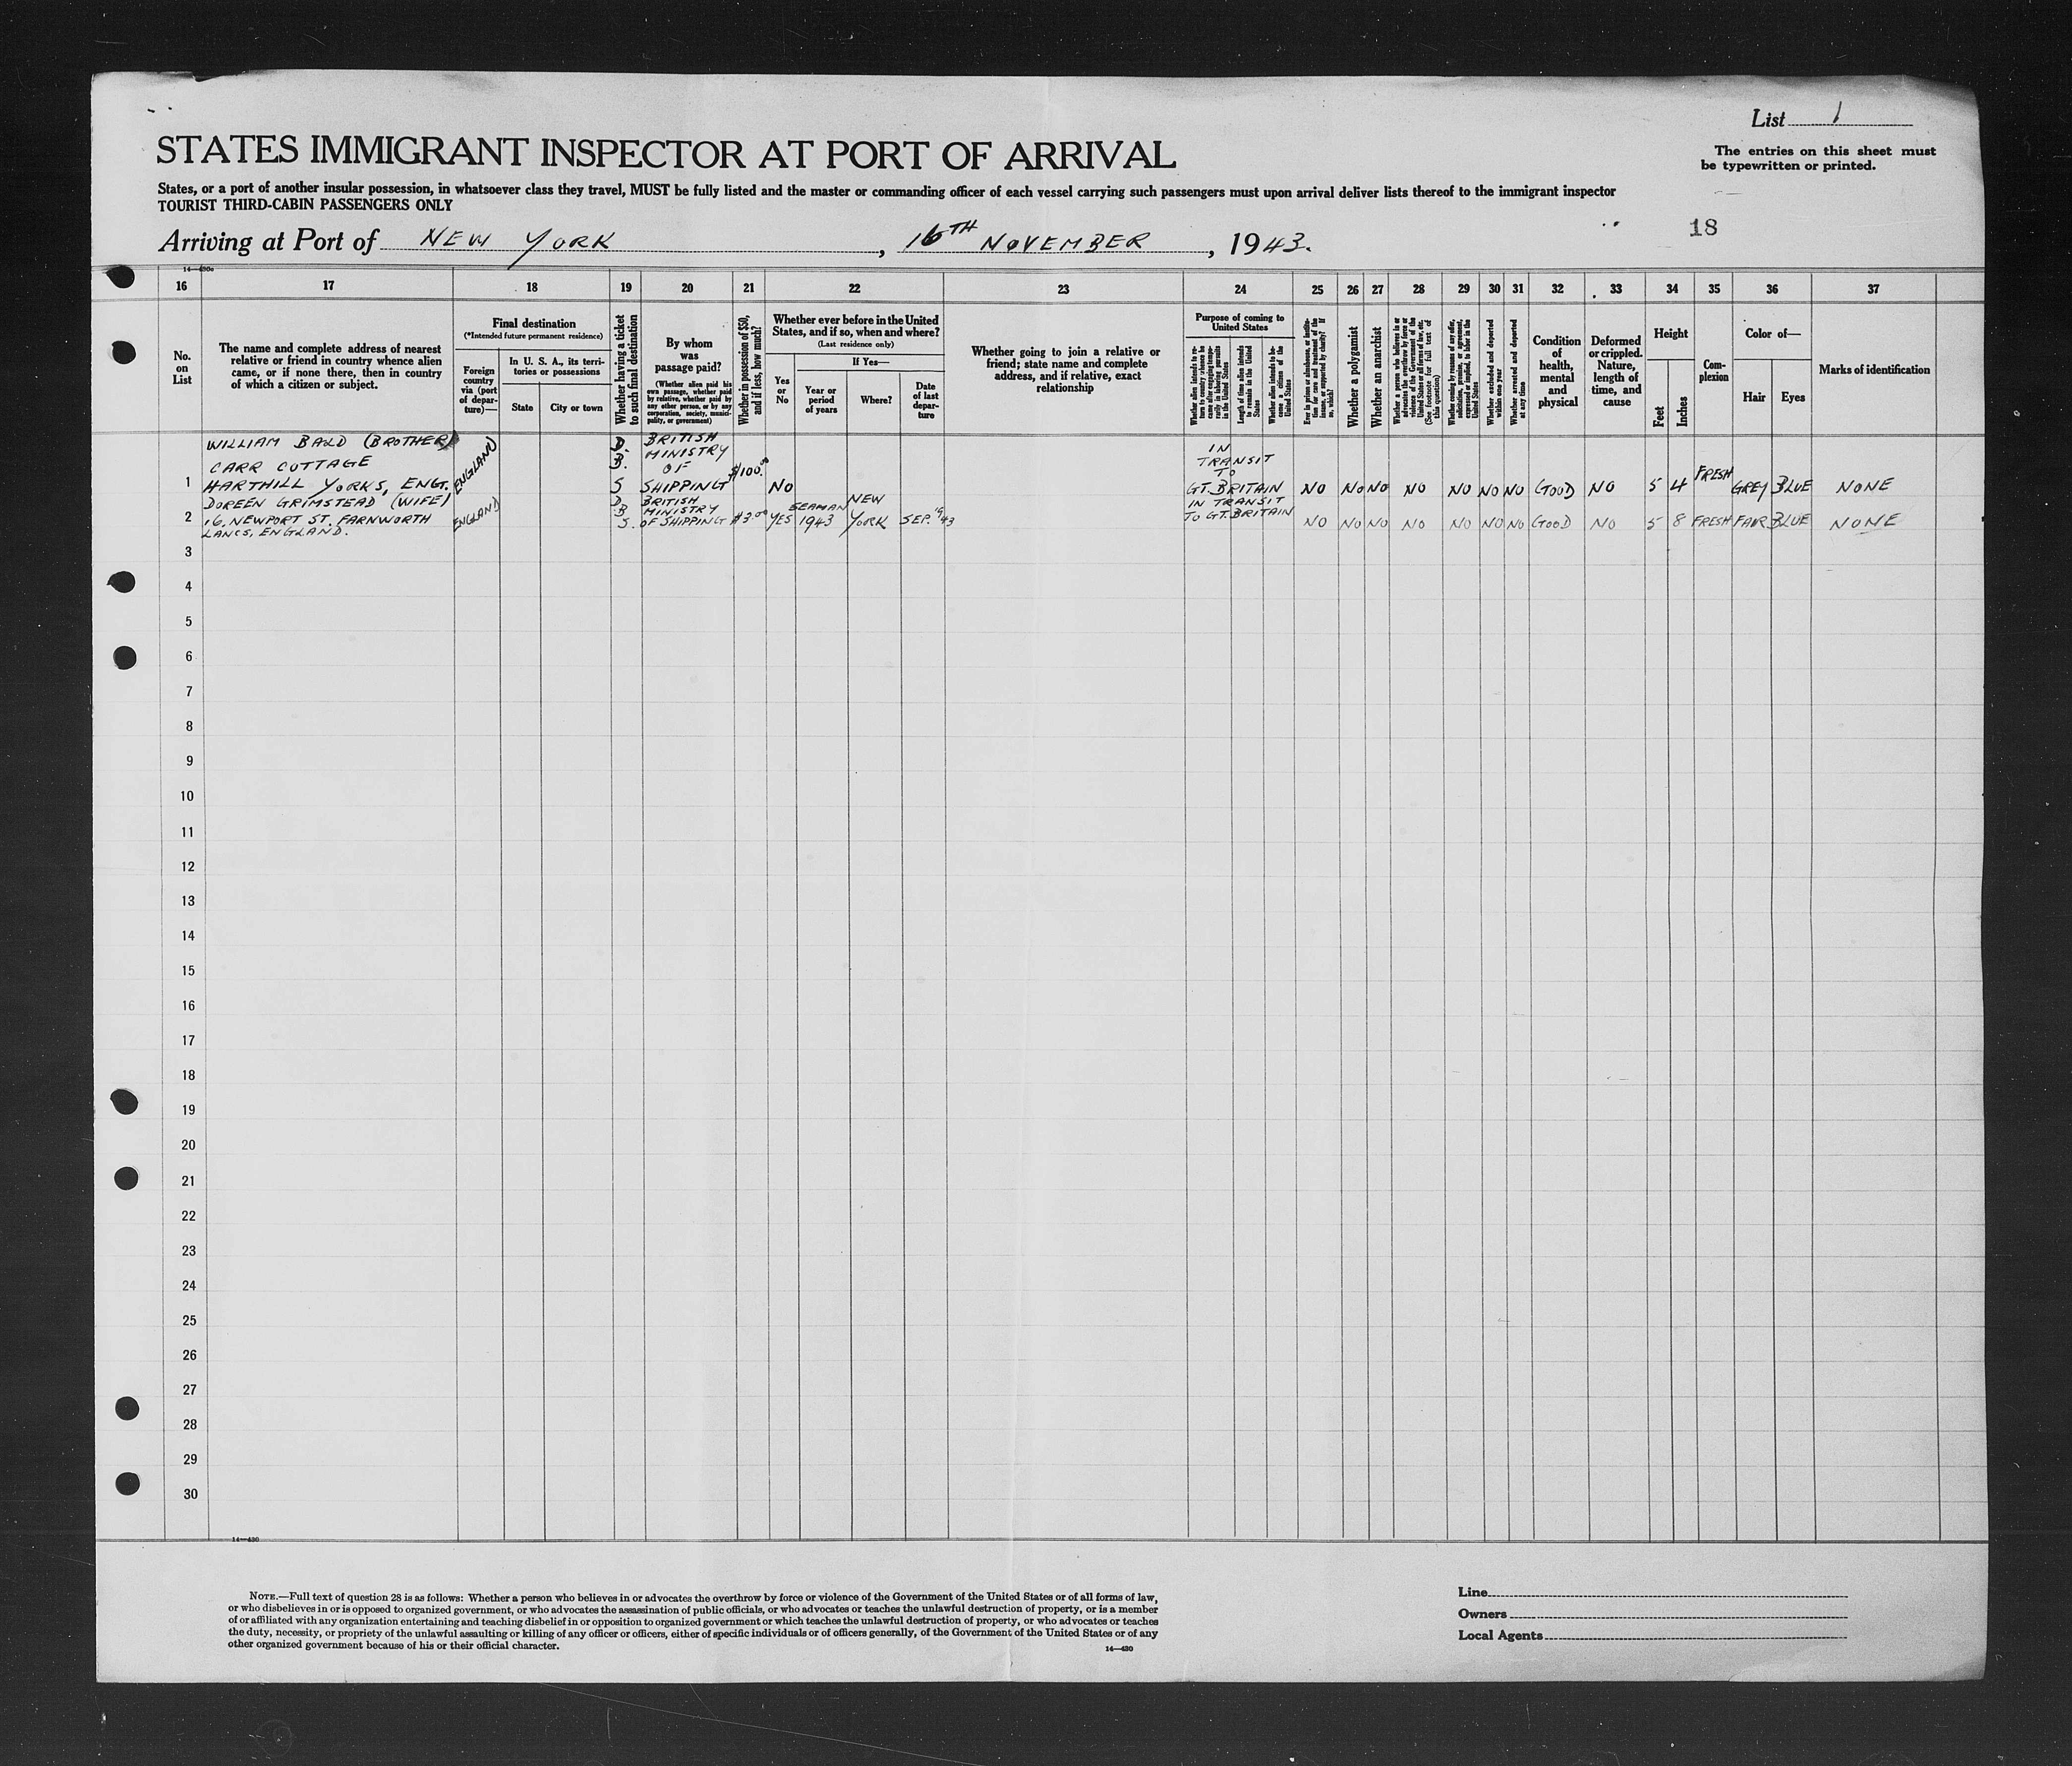 List 1
The entries on this sheet must
be typewritten or printed.
STATES IMMIGRANT INSPECTOR AT PORT OF ARRIVAL
States, or a port of another insular possession, in whatsoever class they travel, MUST be fully listed and the master or commanding officer of each vessel carrying such passengers must upon arrival deliver lists thereof to the immigrant inspector
TOURIST THIRD-CABIN PASSENGERS ONLY
18
Arriving at Port of NEW YORK, 16TH NOVEMBER, 1943.
16 17 18 19 20 21 22 23 24 25 26 27 28 29 30 31 32 33 34 35 36 37
No.
on
List
The name and complete address of nearest
relative or friend in country whence alien
came, or if none there, then in country
of which a citizen or subject.
Final destination
(*Intended future permanent residence)
Foreign
country
via (port
of depar-
ture)—
In U. S. A., its terri-
tories or possessions
State
City or town
Whether having a ticket
to such final destination
By whom
was
passage paid?
(Whether alien paid his
own passage, whether paid
by relative, whether paid by
any other person, or by any
corporation, society, munici-
pality, or government)
Whether in possession of $50,
and if less, how much?
Whether ever before in the United
States, and if so, when and where?
(Last residence only)
Yes
or
No
If Yes—
Year or
period
of years
Where?
Date
of last
depar-
ture
Whether going to join a relative or
friend; state name and complete
address, and if relative, exact
relationship
Purpose of coming to
United States
Length of time alien intends
to remain in the United
States
Whether alien intends to be-
come a citizen of the
United States
Whether a polygamist
Whether an anarchist
(See footnote for full text of
this question)
Whether excluded and deported
within one year
Whether arrested and deported
at any time
Condition
of
health,
mental
and
physical
Deformed
or crippled.
Nature,
length of
time, and
cause
Height
Feet
Inches
Com-
plexion
Color of—
Hair
Eyes
Marks of identification
WILLIAM BALD (BROTHER)
CARR COTTAGE
1 HARTHILL YORKS, ENGT. ENGLAND D. B. S BRITISH MINISTRY OF SHIPPING $100.00 NO IN TRANSIT TO GT. BRITAIN NO NO NO NO NO NO NO GOOD NO 5 4 FRESH GREY BLUE NONE
DOREEN GRIMSTEAD (WIFE)
2 16, NEWPORT ST. FARNWORTH ENGLAND D B S. BRITISH MINISTRY OF SHIPPING $3.00 YES SEAMAN 1943 NEW YORK SEP. 1943 IN TRANSIT TO GT. BRITAIN NO NO NO NO NO NO NO GOOD NO 5 8 FRESH FAIR BLUE NONE
LANCS, ENGLAND.
3
4
5
6
7
8
9
10
11
12
13
14
15
16
17
18
19
20
21
22
23
24
25
26
27
28
29
30
14—430
NOTE.—Full text of question 28 is as follows: Whether a person who believes in or advocates the overthrow by force or violence of the Government of the United States or of all forms of law,
or who disbelieves in or is opposed to organized government, or who advocates the assassination of public officials, or who advocates or teaches the unlawful destruction of property, or is a member
of or affiliated with any organization entertaining and teaching disbelief in or opposition to organized government or which teaches the unlawful destruction of property, or who advocates or teaches
the duty, necessity, or propriety of the unlawful assaulting or killing of any officer or officers, either of specific individuals or of officers generally, of the Government of the United States or of any
other organized government because of his or their official character.
14—430
Line
Owners
Local Agents